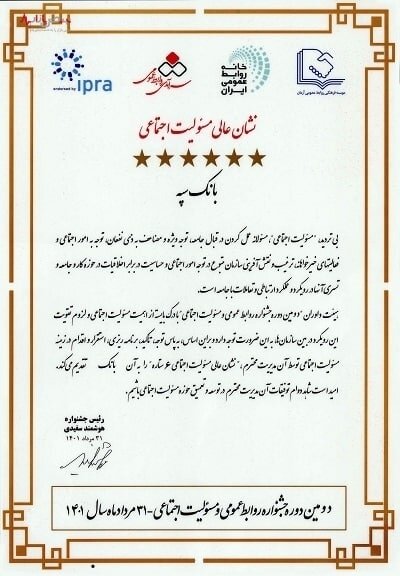 endorsed by ipra
خانه
روابط
عمومی
ایران
موسسه فرهنگی روابط عمومی آرمان
نشان عالی مسئولیت اجتماعی
بانک سپه
بی تردید، "مسئولیت اجتماعی"، مسئولانه عمل کردن در قبال جامعه، توجه ویژه و مضاعف به ذی نفعان، توجه به امور اجتماعی و
فعالیتهای خیرخواهانه، ترغیب و نقش آفرینی سازمان متبوع در توجه امور اجتماعی و حساسیت در برابر اخلاقیات در حوزه کار و جامعه و
تسری آنها در رویکرد و عملکرد ارتباطی و تعاملات با جامعه است.
هیئت داوران "دومین دوره جشنواره روابط عمومی و مسئولیت اجتماعی" با درک بایسته از اهمیت مسئولیت اجتماعی و لزوم تقویت
این رویکرد در بین سازمان ها، به این ضرورت توجه دارد و بر این اساس، به پاس توجه، تاکید، برنامه ریزی، استقرار و اقدام در زمینه
مسئولیت اجتماعی توسط آن مدیریت محترم، "نشان عالی مسئولیت اجتماعی ۶ ستاره" را به آن بانک تقدیم می کند.
امید است شاهد دوام توفیقات آن مدیریت محترم در توسعه و تعمیق حوزه مسئولیت اجتماعی باشیم.
رئیس جشنواره
هوشمند سفیدی
۳۱ مرداد ۱۴۰۱
دومین دوره جشنواره روابط عمومی و مسئولیت اجتماعی - ۳۱ مرداد ماه سال ۱۴۰۱